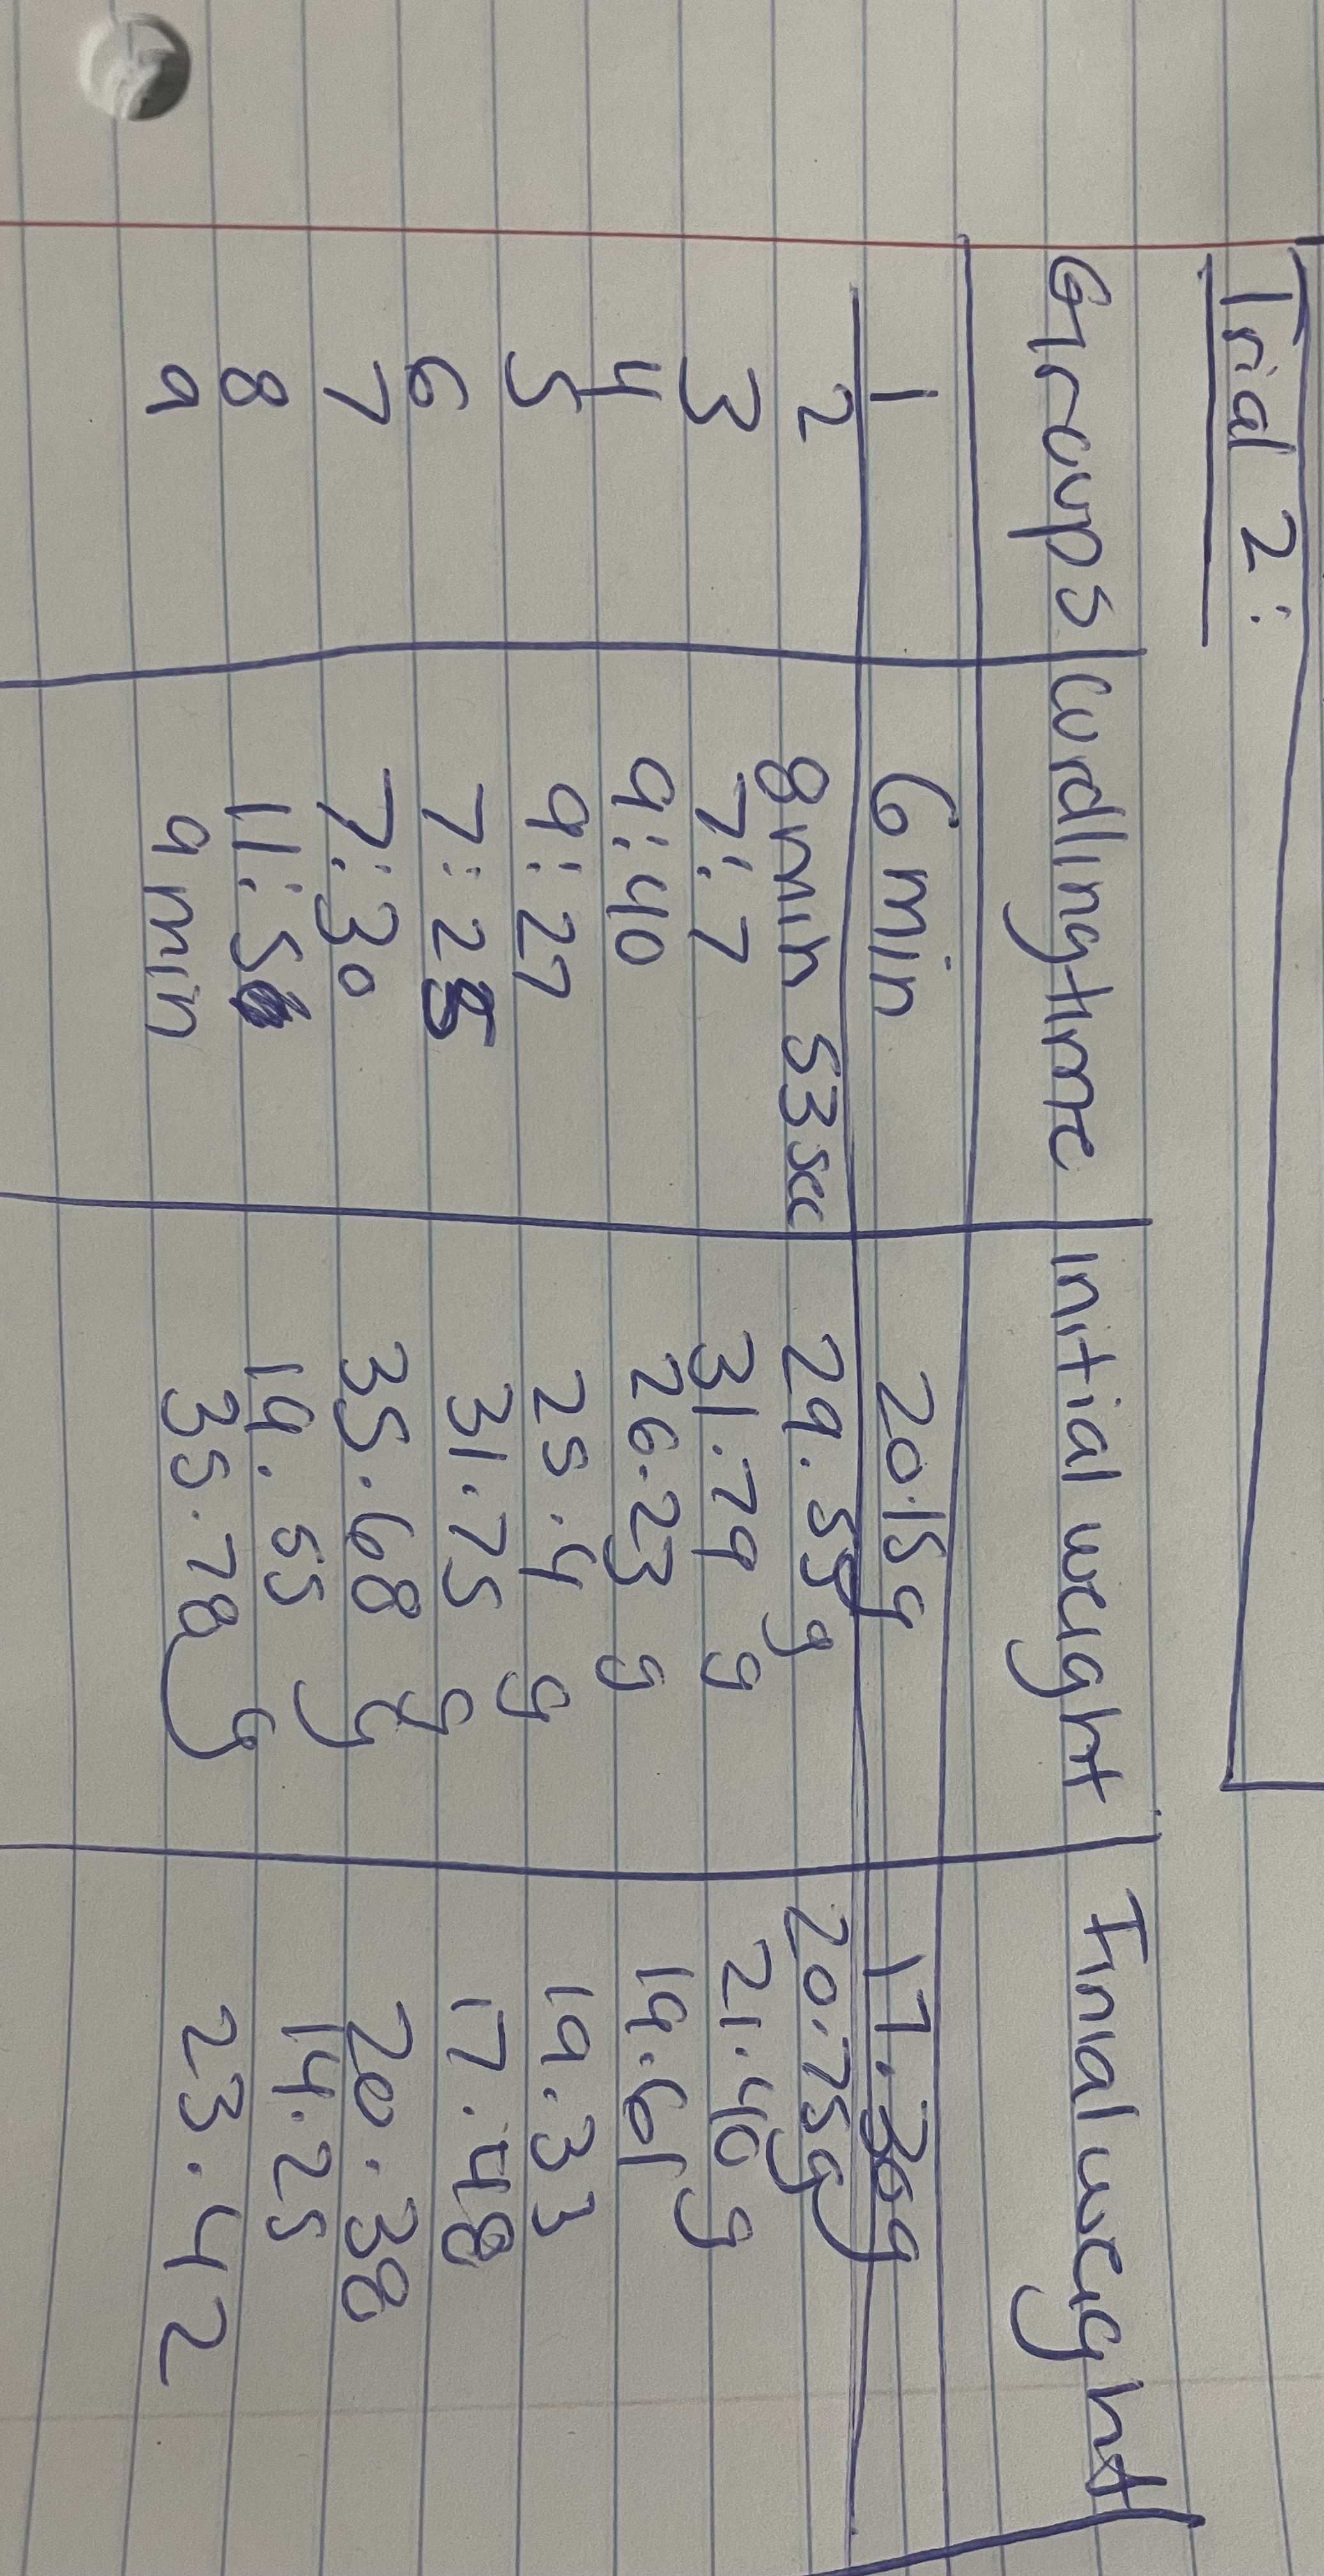 Trial 2:
Groups curdlingtime initial weight Finial weight
1 6 min 20.15g 17.30g
2 8 min 53 sec 29.55g 20.75g
3 7:7 31.79 g 21.40 g
4 9:40 26.23 g 19.61
5 9:27 25.4 g 19.33
6 7:25 31.75 g 17.48
7 7:30 35.68 g 20.38
8 19.55 g 14.25
9 9 min 35.78 g 23.42